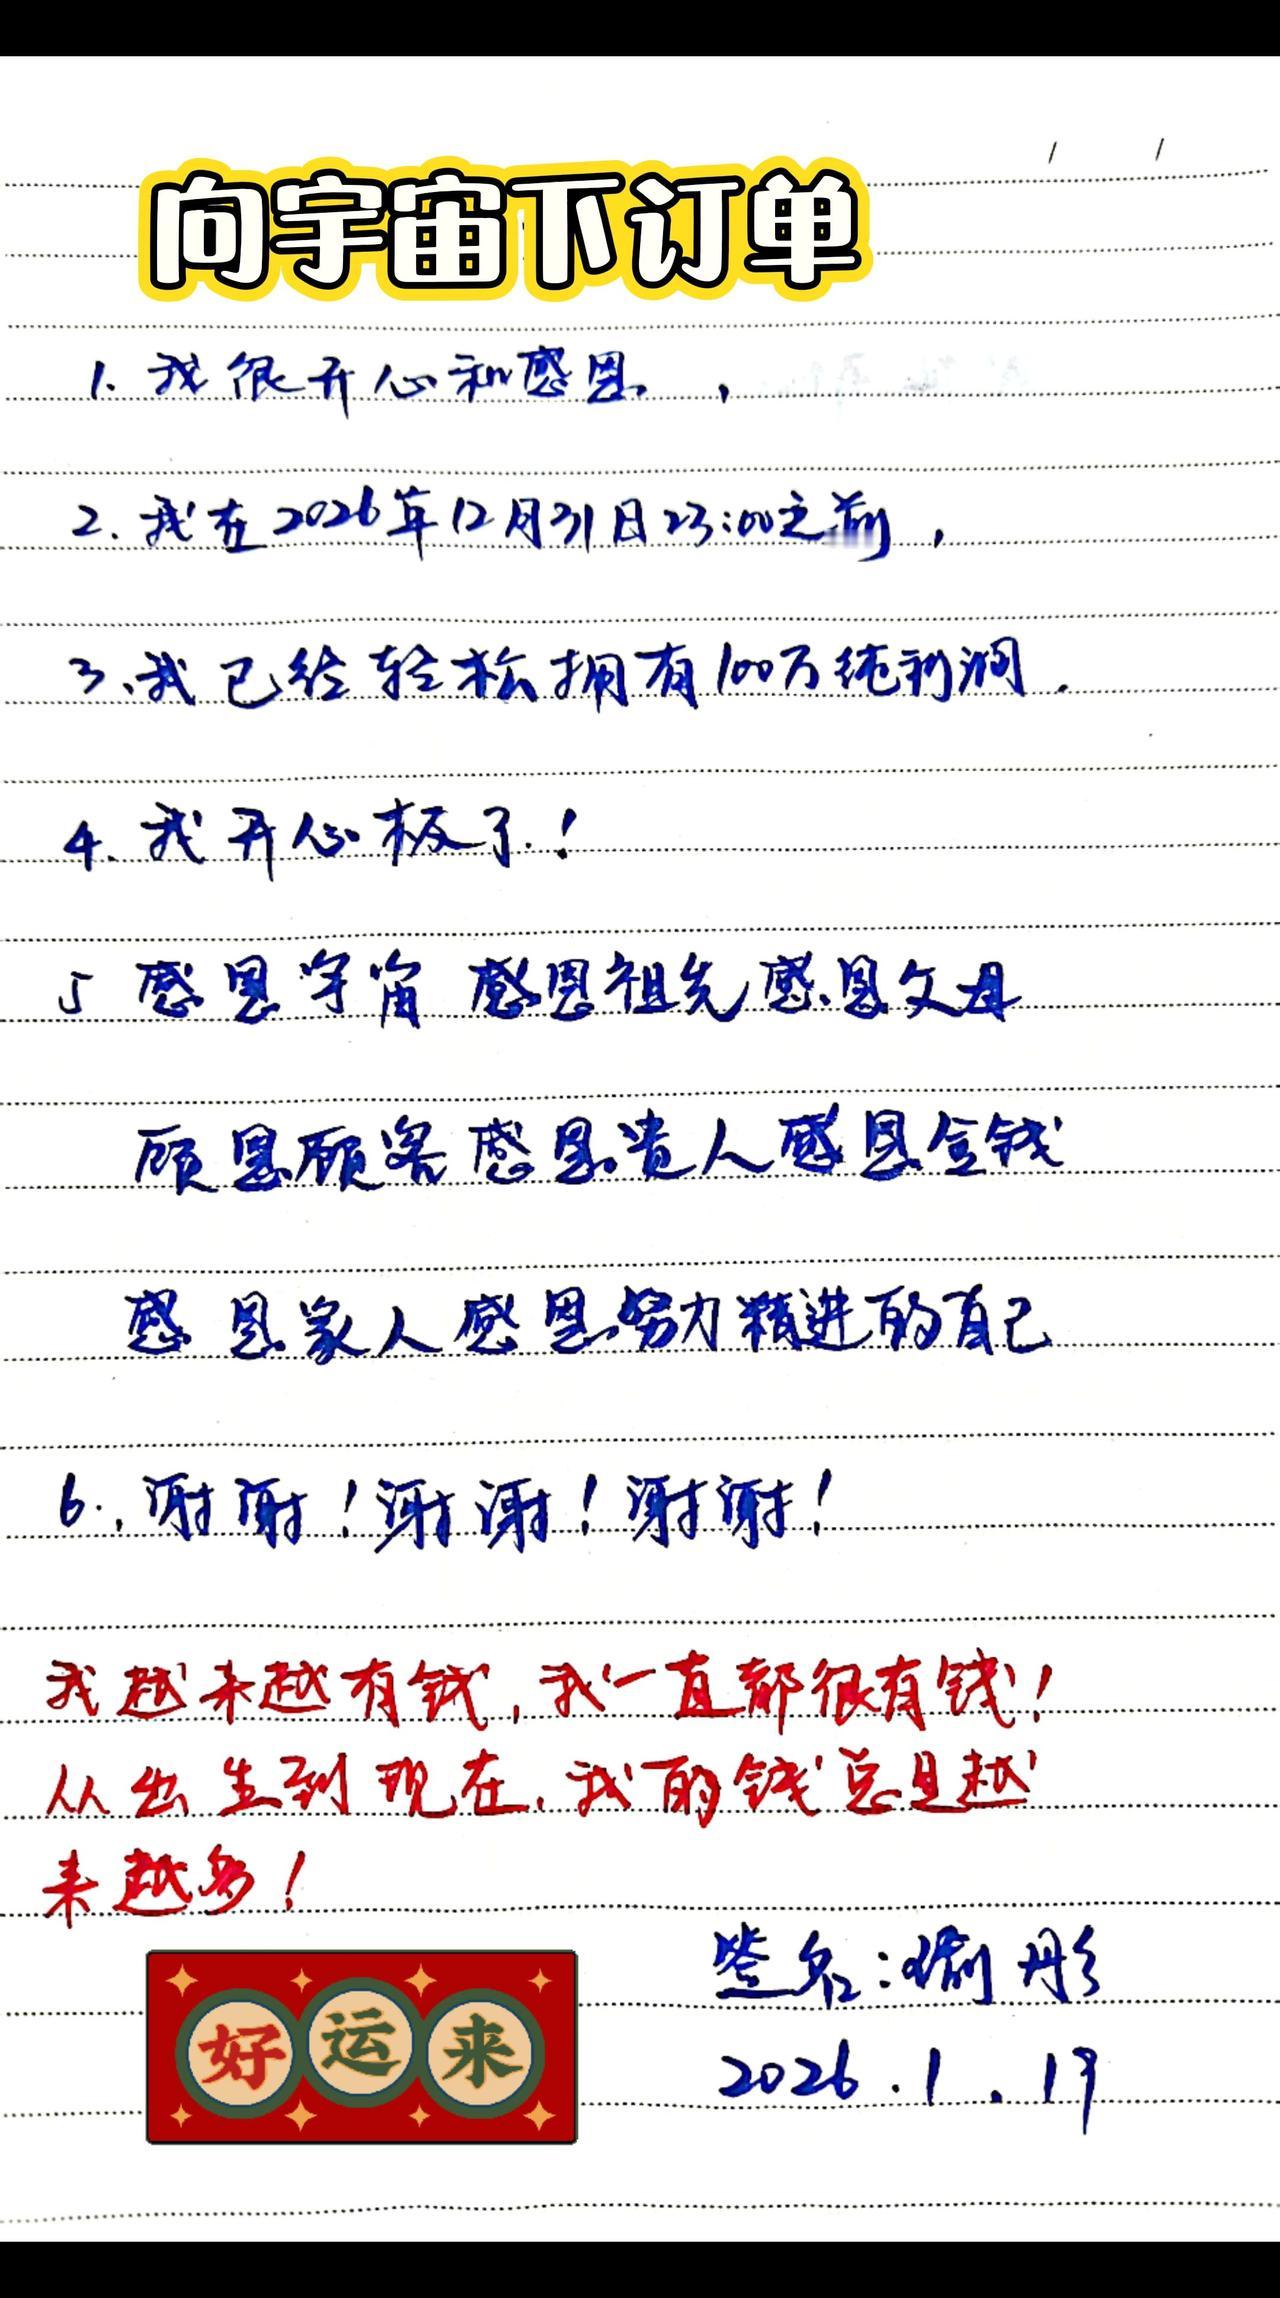 向宇宙下订单
1. 我很开心和感恩 ，
2. 我在2026年12月31日23:00之前，
3、我已经轻松拥有100万纯利润．
4. 我开心极了．！
5 感恩宇宙 感恩祖先 感恩父母
顾恩顾客 感恩贵人 感恩金钱
感恩家人 感恩努力精进的自己
6.，谢谢！谢谢！谢谢！
我越来越有钱，我一直都很有钱！
从出生到现在，我的钱总是越
来越多！
签名：彤
2026.1.19
好运来